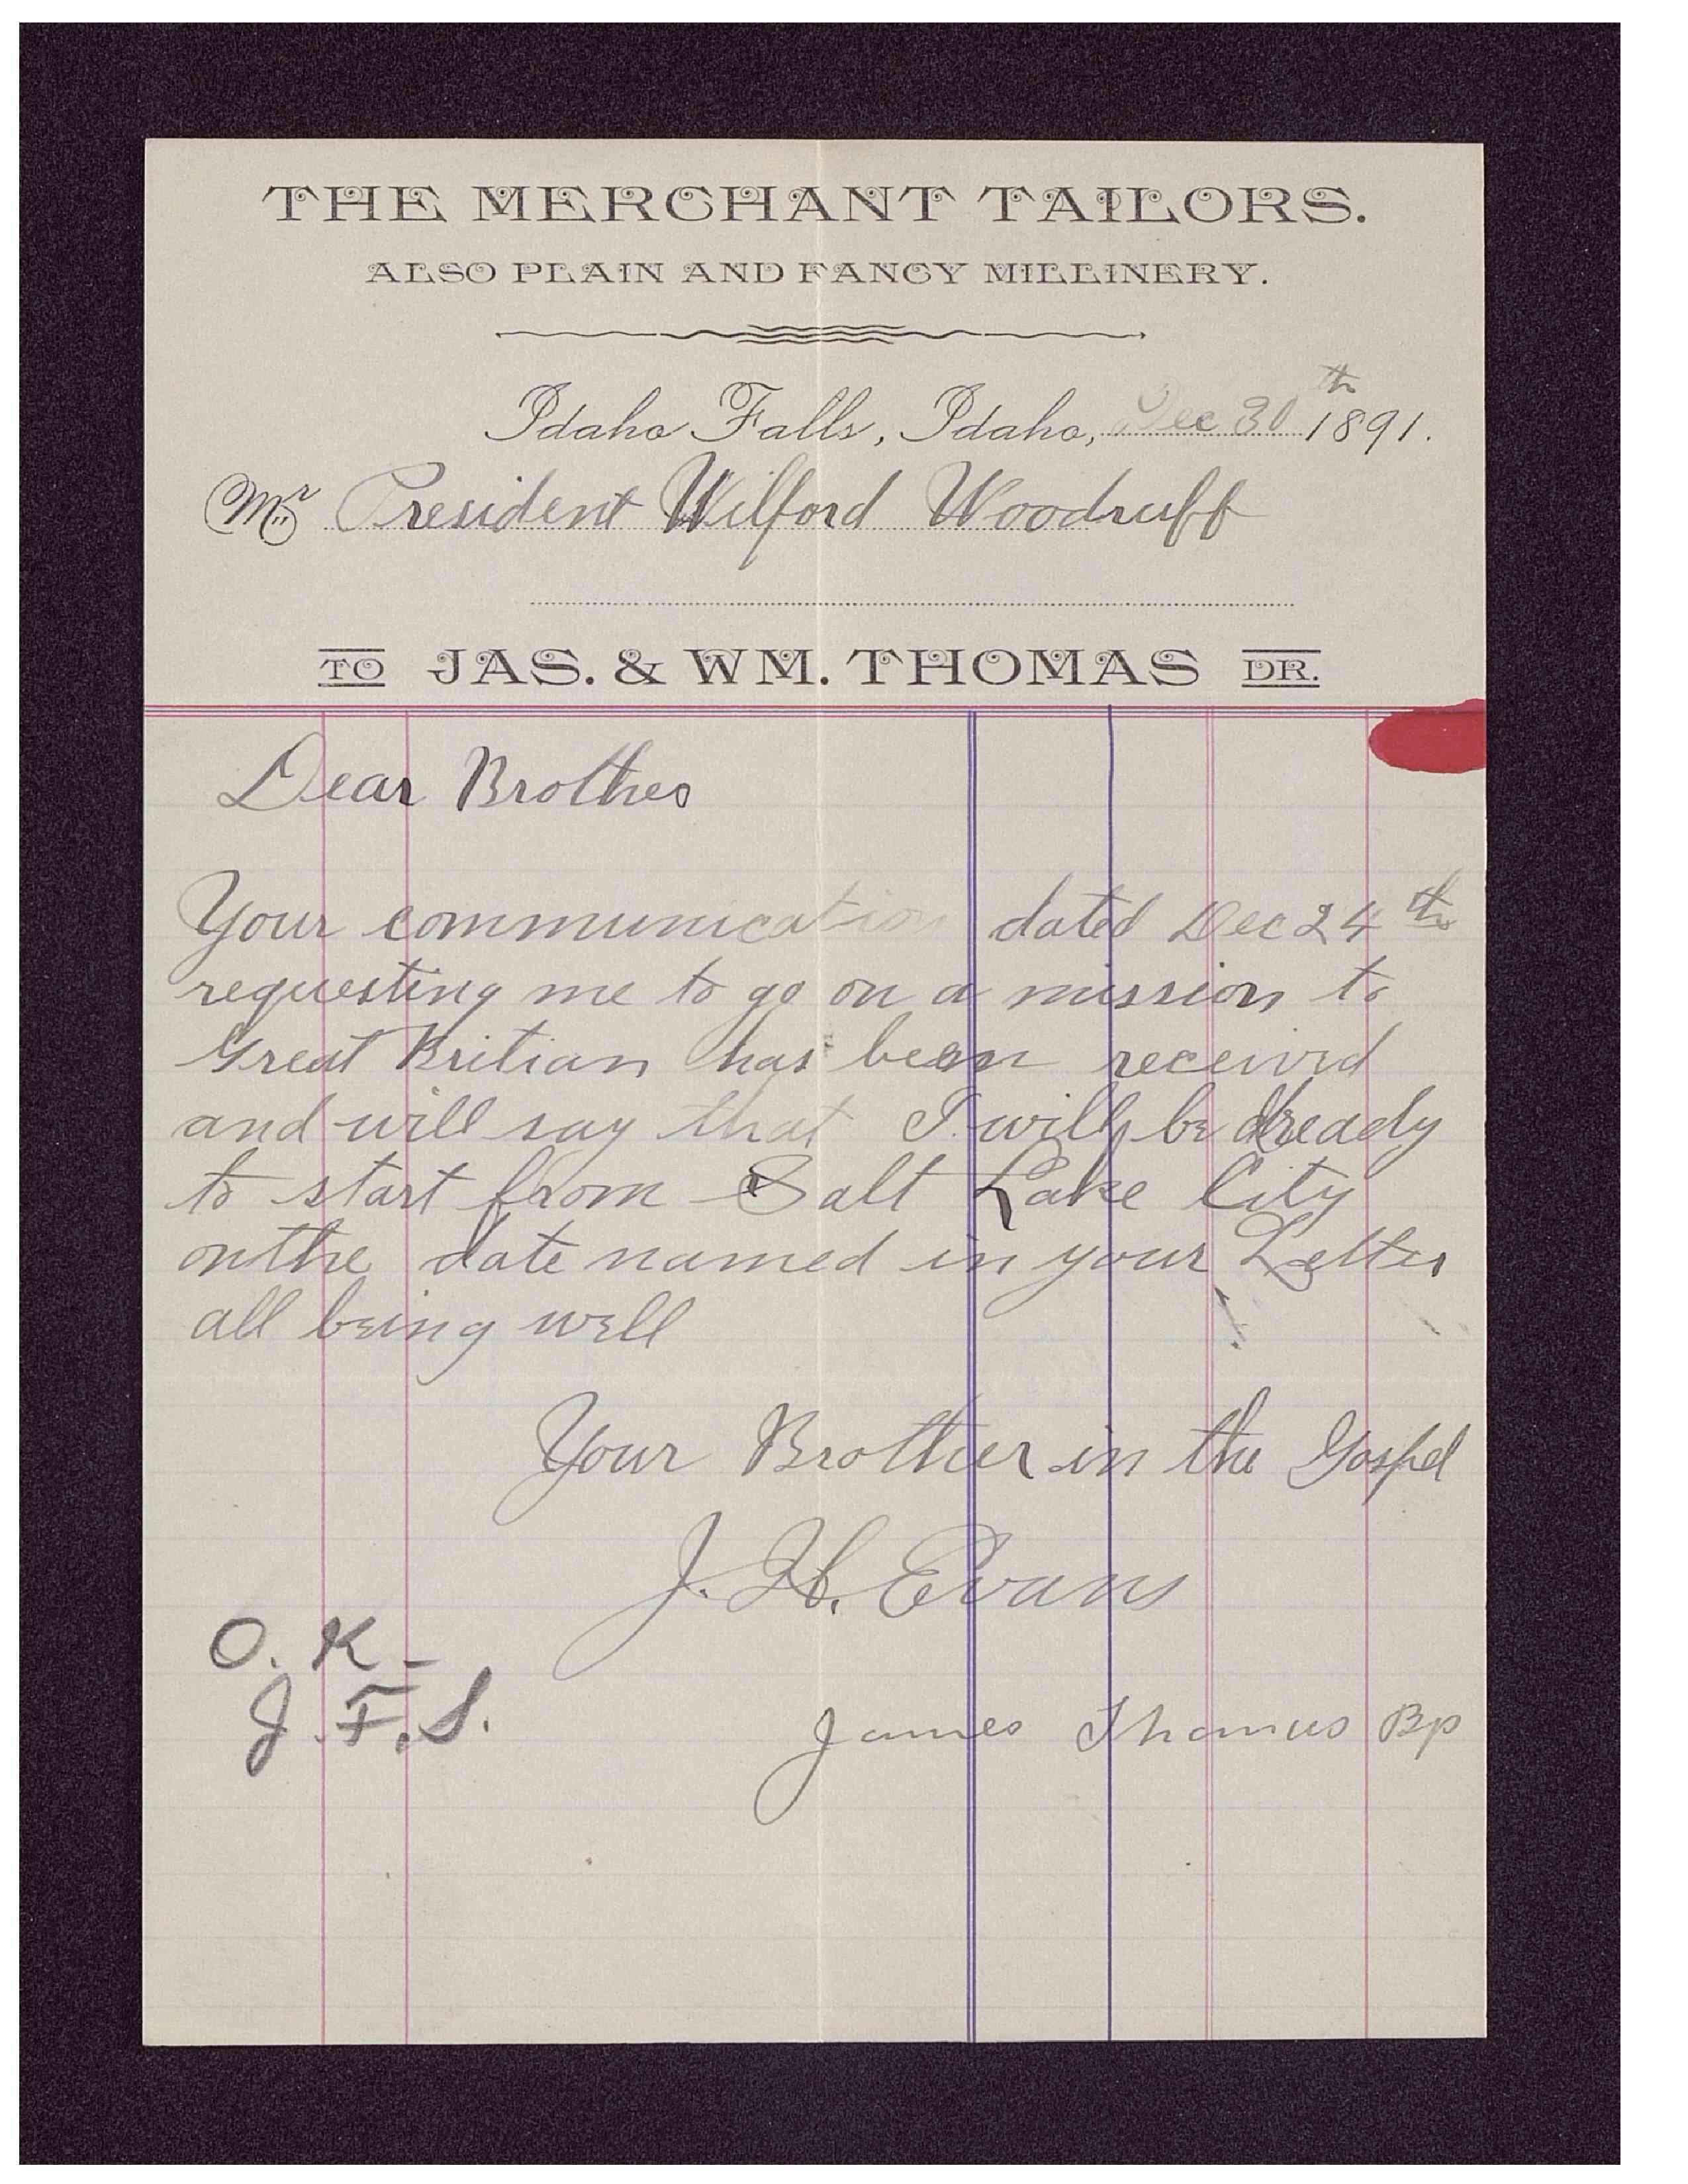 THE MERCHANT TAILORS.
ALSO PLAIN AND FANCY MILLINERY.
Idaho Falls, Idaho, Dec 30th 1891.
Mr President Wilford Woodruff
TO JAS. & WM. THOMAS DR.
Dear Brother
Your communication dated Dec 24th
requesting me to go on a mission to
Great Britian has been received
and will say that I will be ready
to start from Salt Lake City
on the date named in your Letter
all being well
Your Brother in the Gospel
J. H. Evans
O. K -
J. F. S.
James Thomas Bp